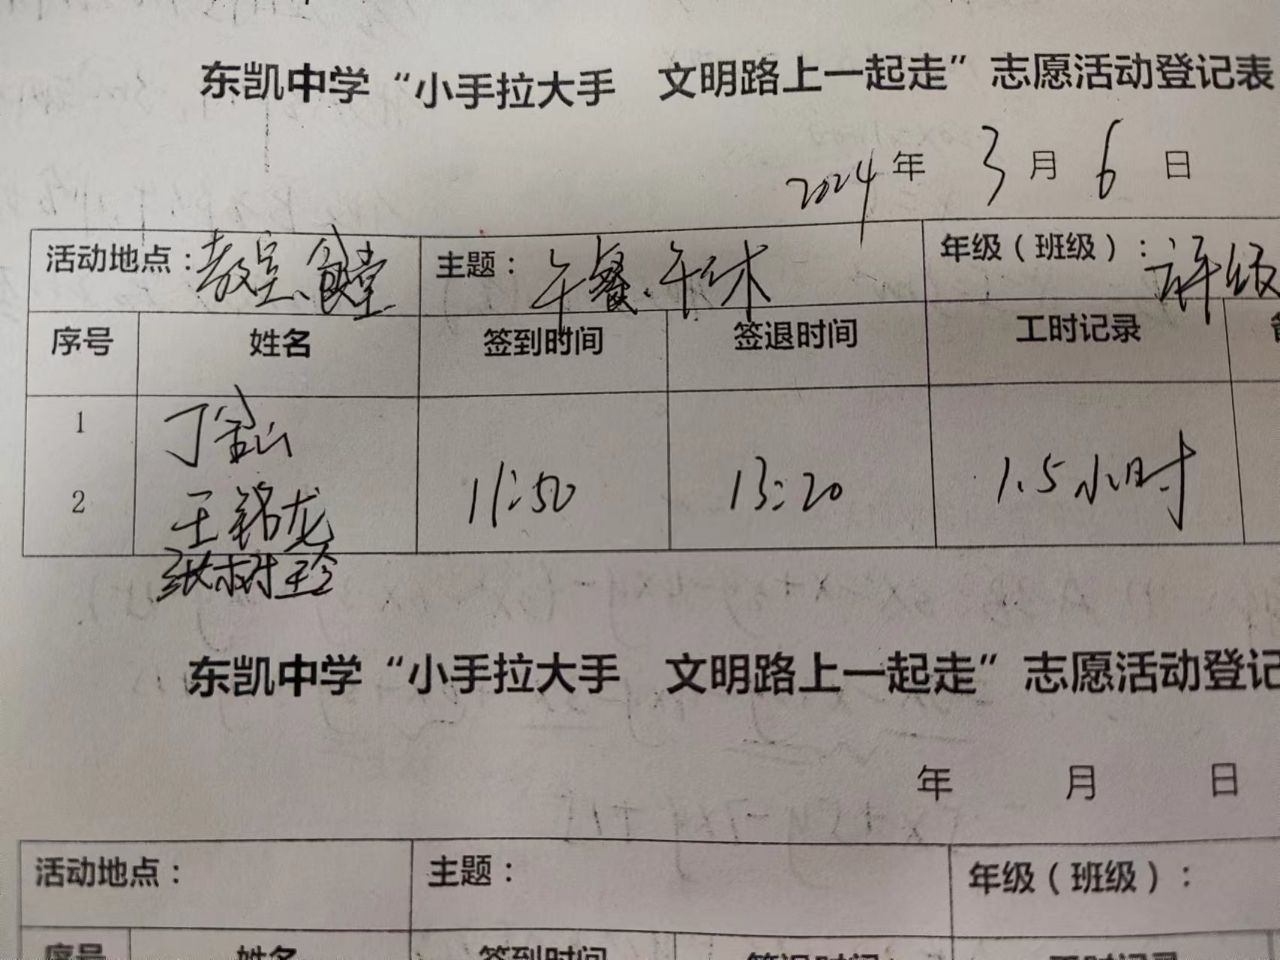 东凯中学“小手拉大手 文明路上一起走”志愿活动登记表
2024年 3月 6日
活动地点：教室、食堂 主题：午餐、午休 年级（班级）：
序号 姓名 签到时间 签退时间 工时记录
1 丁金山
2 王锦龙 11:50 13:20 1.5小时
张树玲
东凯中学“小手拉大手 文明路上一起走”志愿活动登记
年 月 日
活动地点： 主题： 年级（班级）：
序号 姓名 签到时间 签退时间 工时记录